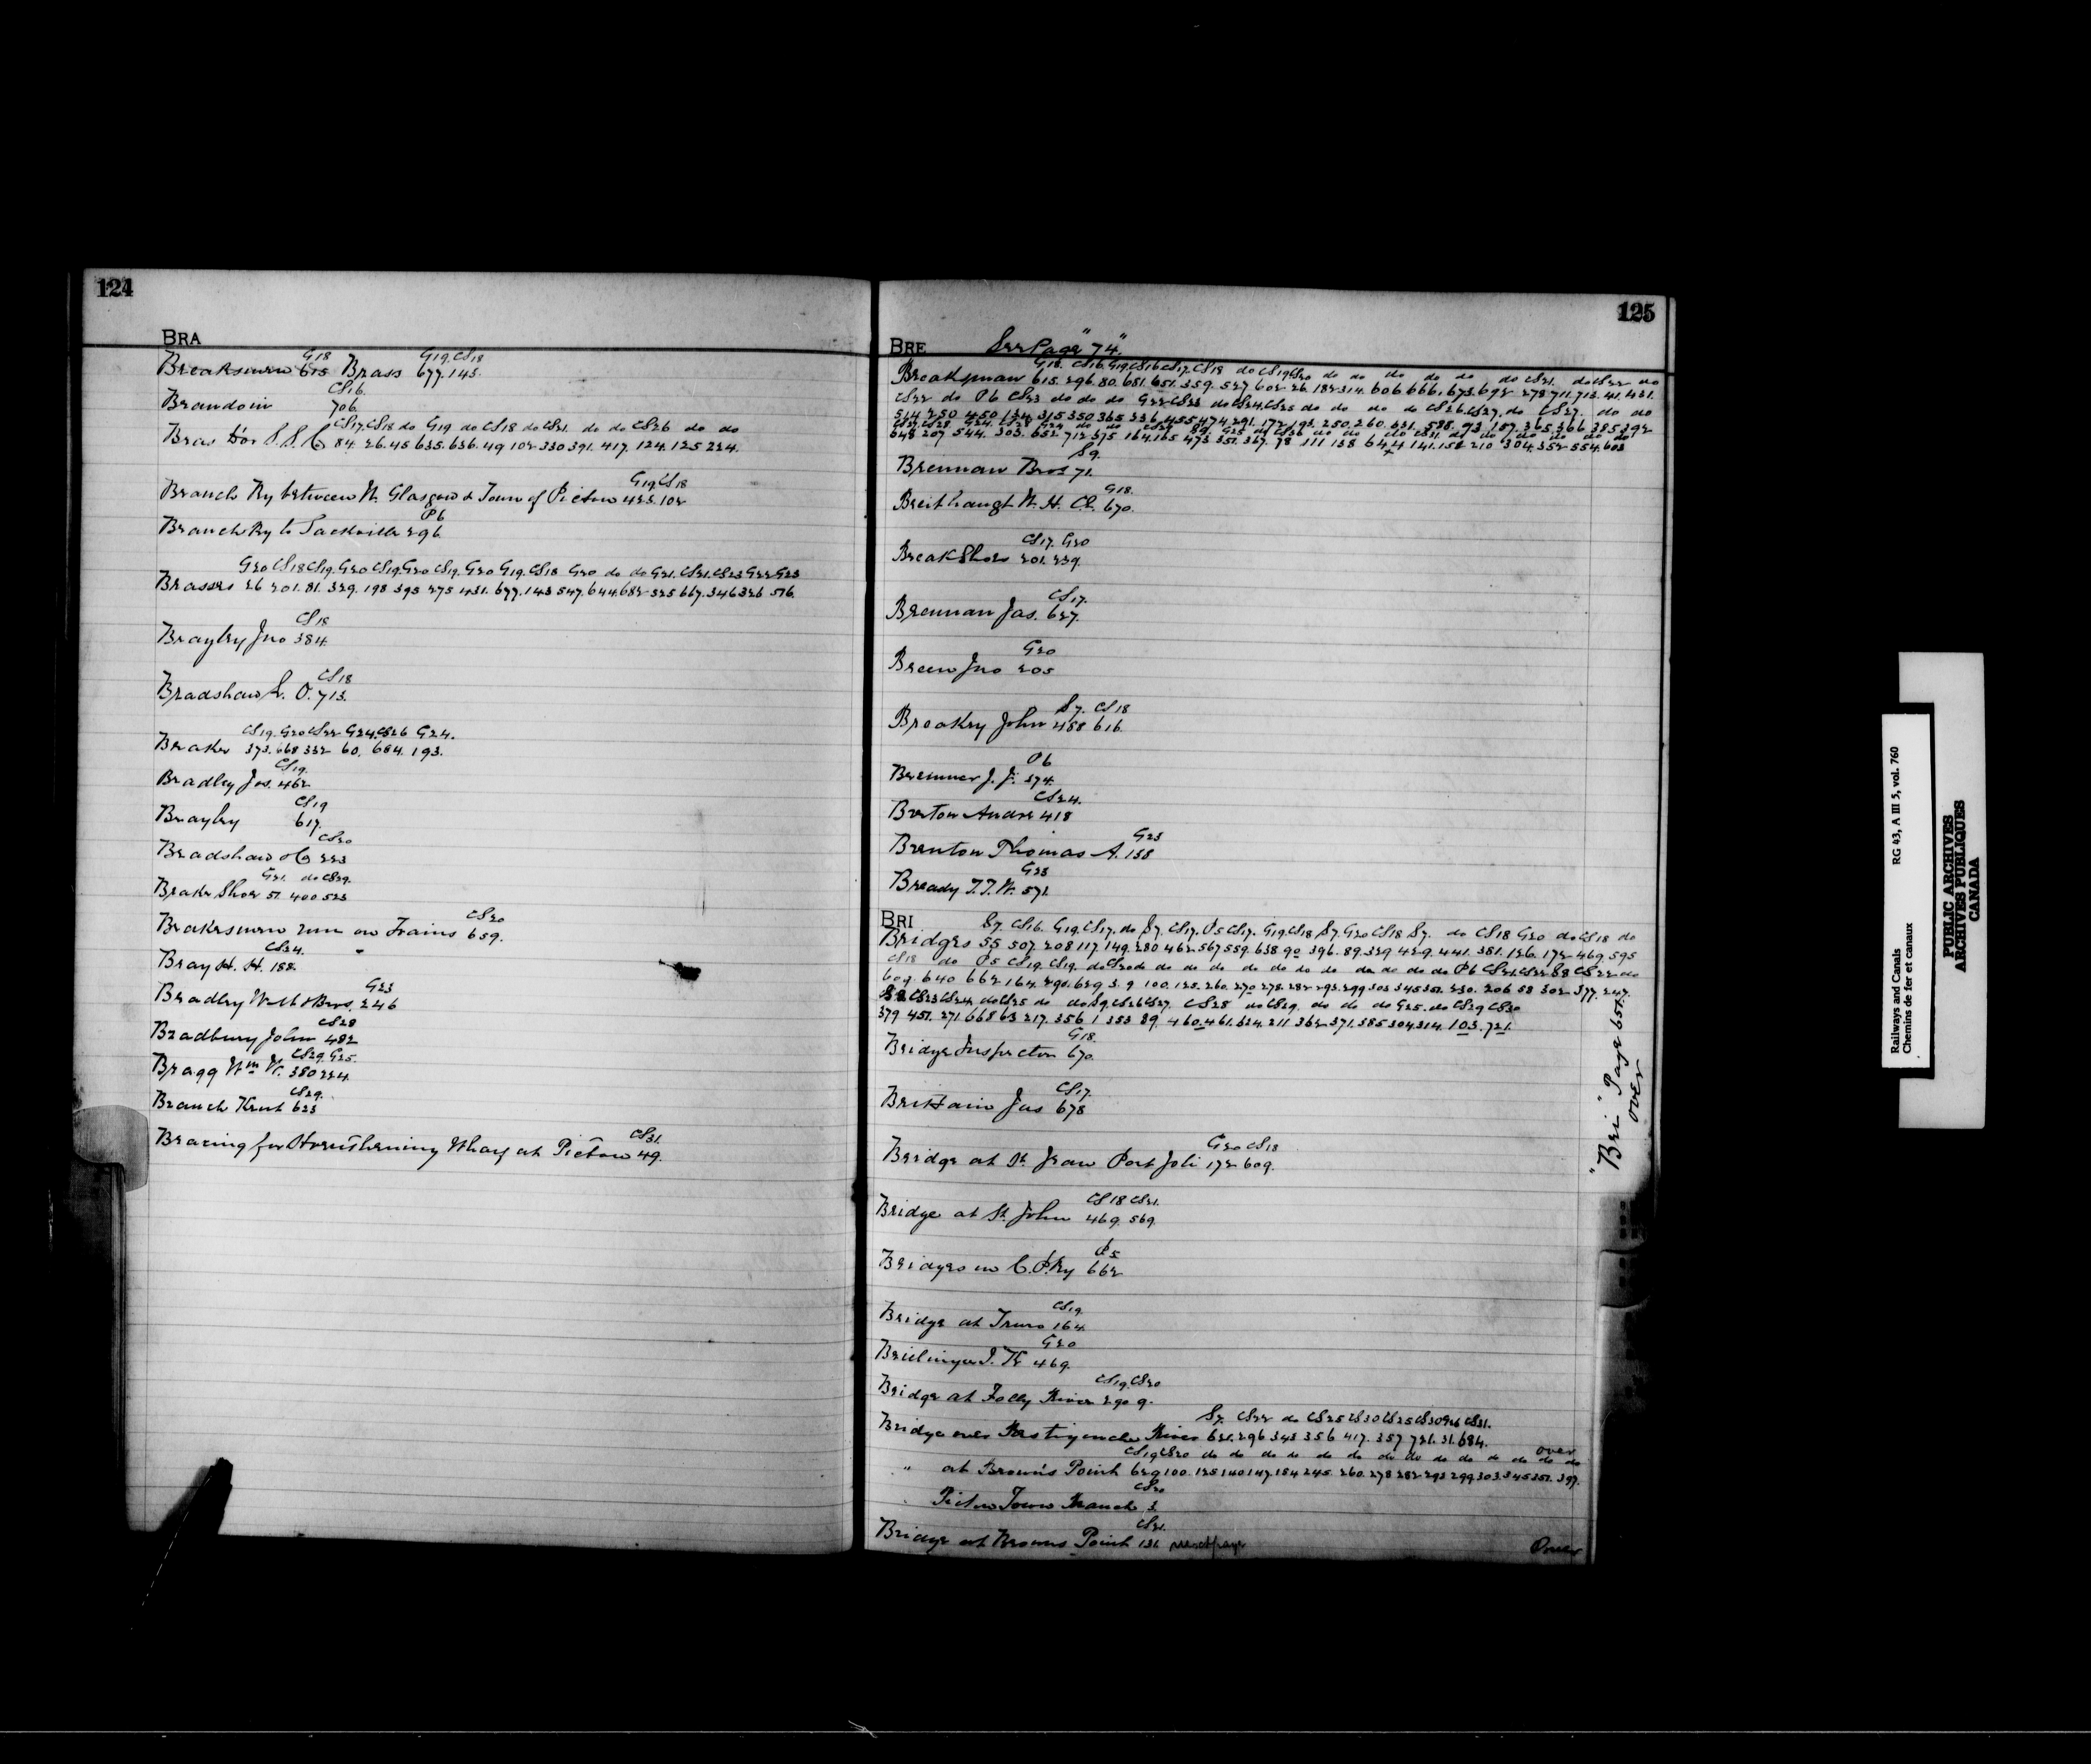 124
BRA
G18 G19. CS18
Breaksmen 615 Brass 677. 143.
CS16.
Brandoin 706.
CS17. CS18 do G19 do CS18 do CS21. do do CS26 do do
Bras D'or S.S. Co 84. 26. 45 635. 636. 49 102 330 391. 417. 124. 125 224.
G19. CS18
Branch Ry between N. Glasgow & Town of Pictou 423. 102
P6
Branch Ry to Sackville 296
G20 CS18 CS19. G20 CS19. G20 CS19. G20 G19. CS18 G20 do do G21. CS21. CS23 G22 G23
Brasses 26 201. 81. 329. 198 395 275 431. 677. 143 547. 644. 682 525 667. 346 326 576.
CS18
Brayley Jno 384.
CS18
Bradshaw L. O. 713.
CS19. G20 CS22 G24. CS26 G24.
Brakes 373. 668 332 60. 684. 193.
CS19.
Bradley Jos. 462
CS19
Brayley 617.
CS20
Bradshaw & Co 223
G21. do CS29.
Brake Shoes 51. 400 523
CS20
Brakesmen run on Trains 659.
CS24.
Bray H. H. 188.
G23
Bradley Welt & Bros. 246
CS28
Bradbury John 482
CS29. G25.
Bragg Wm W. 380 224.
CS29.
Branch Kent 623
CS31.
Bracing for Strengthening Wharf at Pictou 49.
125
BRE See Page "74"
G18. CS16. G19. CS16 CS17. CS18 do CS19 CS20 do do do do do do CS21. do CS22 do
Breakman 615. 296. 80. 681. 651. 359. 527 602 26. 182 314. 606 666. 673. 692 278 711. 713. 41. 431.
CS22 do P6 CS23 do do do G22 CS23 do CS24. CS25 do do do do CS26. CS27. do CS27. do do
514 250 450 124 315 350 365 336. 455 474 291. 172 193. 250. 260. 631. 585. 93. 107. 365. 366 385 392
648 207 544. 303. 652 712 375 164. 165 473 351. 367. 78 111 138 644 141. 158 210 304. 352 554. 603
S9.
Brennan Bros 71.
G18.
Breithaupt W. H. C.E. 670.
CS17. G20
Break Shoes 201. 239.
CS17.
Brennan Jas. 627.
G20
Breen Jno 205
S7. CS18
Breakey John 488 616.
P6
Bremner J. J. 374.
CS24.
Breton Andre 418
G23
Brenton Thomas A. 138
G23
Bready T.T.W. 571.
BRI
S7. CS16. G19. CS17. do S7. CS17. P5 CS17. G19. CS18 S7. G20 CS18 S7. do CS18 G20 do CS18 do
Bridges 55 507. 208 117. 149. 280 462 567 559. 638 90 396. 89. 329 429. 441. 381. 126. 172 469. 595
CS18 do P5 CS19. CS19. do CS20 do do do do do do do do do do do do P6 CS21. CS22 S8 CS22 do
609. 640 662 164. 290. 629 3. 9 100. 125. 260. 270 278. 282 293. 299. 303 345 351. 230. 206 58 302 377. 247.
S8 CS23 CS24. do CS25 do do S9. CS26 CS27. CS28 do CS29. do do do G25. do CS29 CS30
379 451. 271. 668 63 217. 356 1 353 89. 460. 461. 624. 211. 362 371. 385 304 314. 103. 721.
G18.
Bridge Inspector 670.
CS17.
Brittain Jas 678
G20 CS18
Bridge at St. Jean Port Joli 172 609.
CS18 CS21.
Bridge at St. John 469. 569.
P5
Bridges on C.P. Ry 662
CS19.
Bridge at Truro 164.
G20
Brielinger J. K 469.
CS19. CS20
Bridge at Folly River 290 9.
S7. CS22 do CS25 CS30 CS25 CS30 G26 CS31.
Bridge over Restigouche River 621. 296 343 356 417. 357 721. 31. 684.
over
CS19 CS20 do do do do do do do do do do do do do do
" at Brown's Point 629 100. 125 140 147. 154 245. 260. 278 282 293 299 303. 345 351. 397.
CS20
" Pictou Town Branch 3.
CS21.
Bridge at Browns Point 131. next page
Over
"Bri" Page 651.
over
Railways and Canals RG 43, A III 5, vol. 760
Chemins de fer et canaux
PUBLIC ARCHIVES
ARCHIVES PUBLIQUES
CANADA